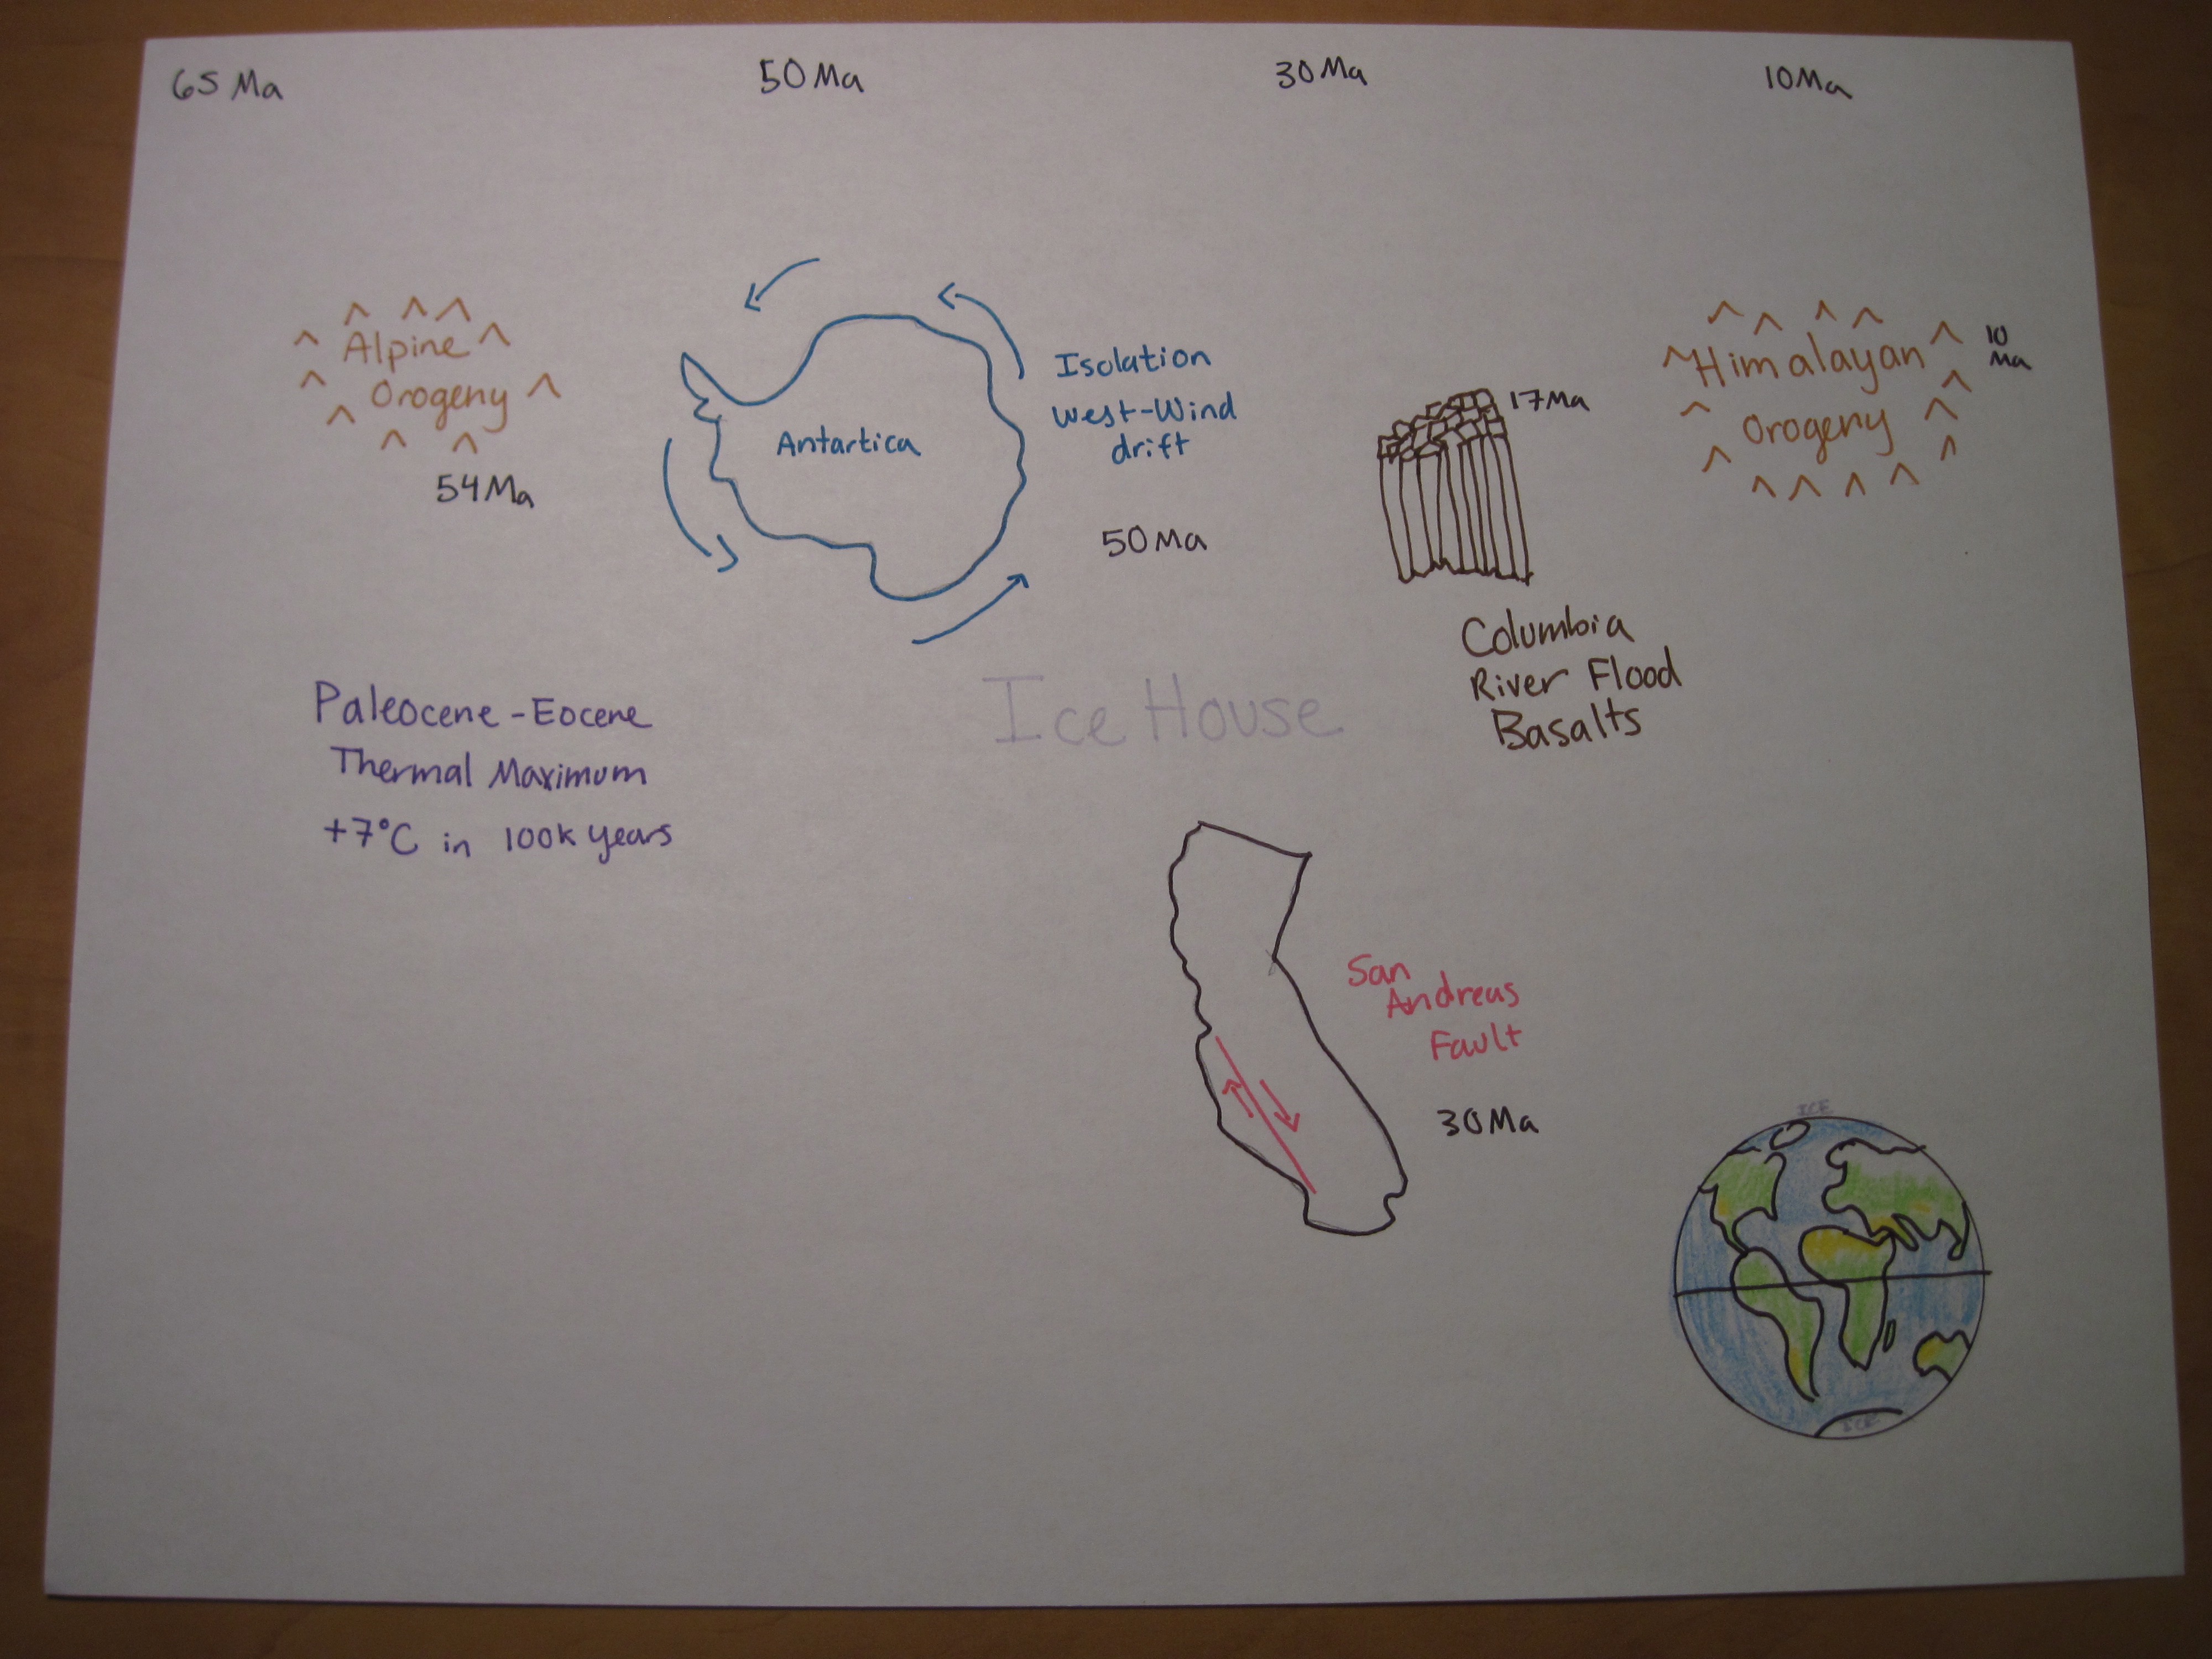 65 Ma
50 Ma
30 Ma
10 Ma
Alpine
Orogeny
54 Ma
Antartica
Isolation
West-Wind
drift
50 Ma
17 Ma
Columbia
River Flood
Basalts
Himalayan
Orogeny
10
Ma
Paleocene-Eocene
Thermal Maximum
+7°C in 100k years
Ice House
San
Andreas
Fault
30 Ma
ICE
ICE